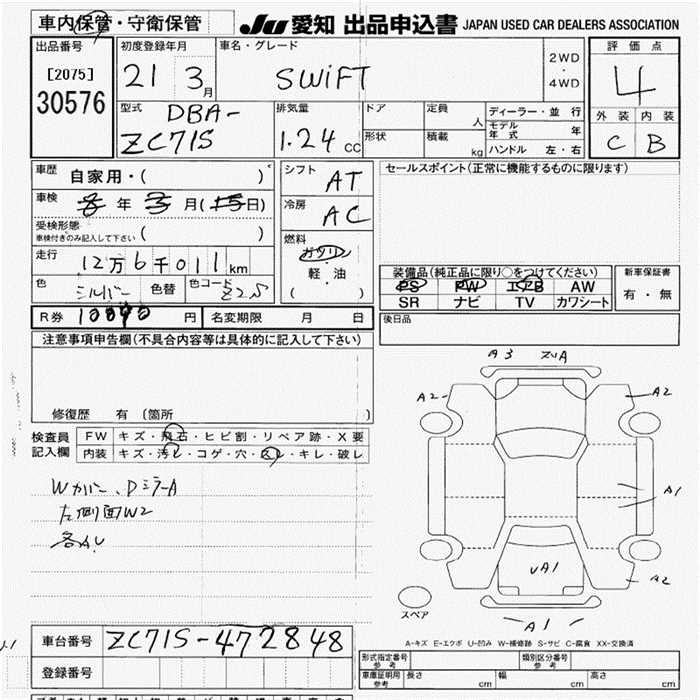 車内保管・守衛保管
JU 愛知 出品申込書 JAPAN USED CAR DEALERS ASSOCIATION
出品番号
[2075]
30576
初度登録年月
21 3月
車名・グレード
SWIFT
2WD
・
4WD
評価点
4
外装 内装
C B
型式
DBA-
ZC71S
排気量
1.24 CC
ドア
形状
定員 人
積載 kg
ディーラー・並行
モデル年式 年
ハンドル 左・右
車歴 自家用・( )
車検 年 月( 日)
受検形態
車検付きのみ記入して下さい ( )
走行 12万6千011km
色 シルバー 色替 色コード Z2S
シフト AT
冷房 AC
燃料
ガソリン
・
軽・油
( )
セールスポイント(正常に機能するものに限ります)
装備品(純正品に限り○をつけてください)
PS PW エアB AW
SR ナビ TV カワシート
新車保証書
有・無
R券 円 名変期限 月 日
後日品
注意事項申告欄(不具合内容等は具体的に記入して下さい)
修復歴 有 (箇所 )
検査員記入欄
FW キズ・飛石・ヒビ割・リペア跡・X要
内装 キズ・汚レ・コゲ・穴・スレ・キレ・破レ
Wカバー、DミラーA
左側面W2
各AU
A3
A2
A2
A1
UA1
A2
A1
スペア
A-キズ E-エクボ U-凹み W-補修跡 S-サビ C-腐食 XX-交換済
車台番号 ZC71S-472848
登録番号
形式指定番号 参考
類別区分番号 参考
車庫証明用 参考
長さ cm 幅 cm 高さ cm